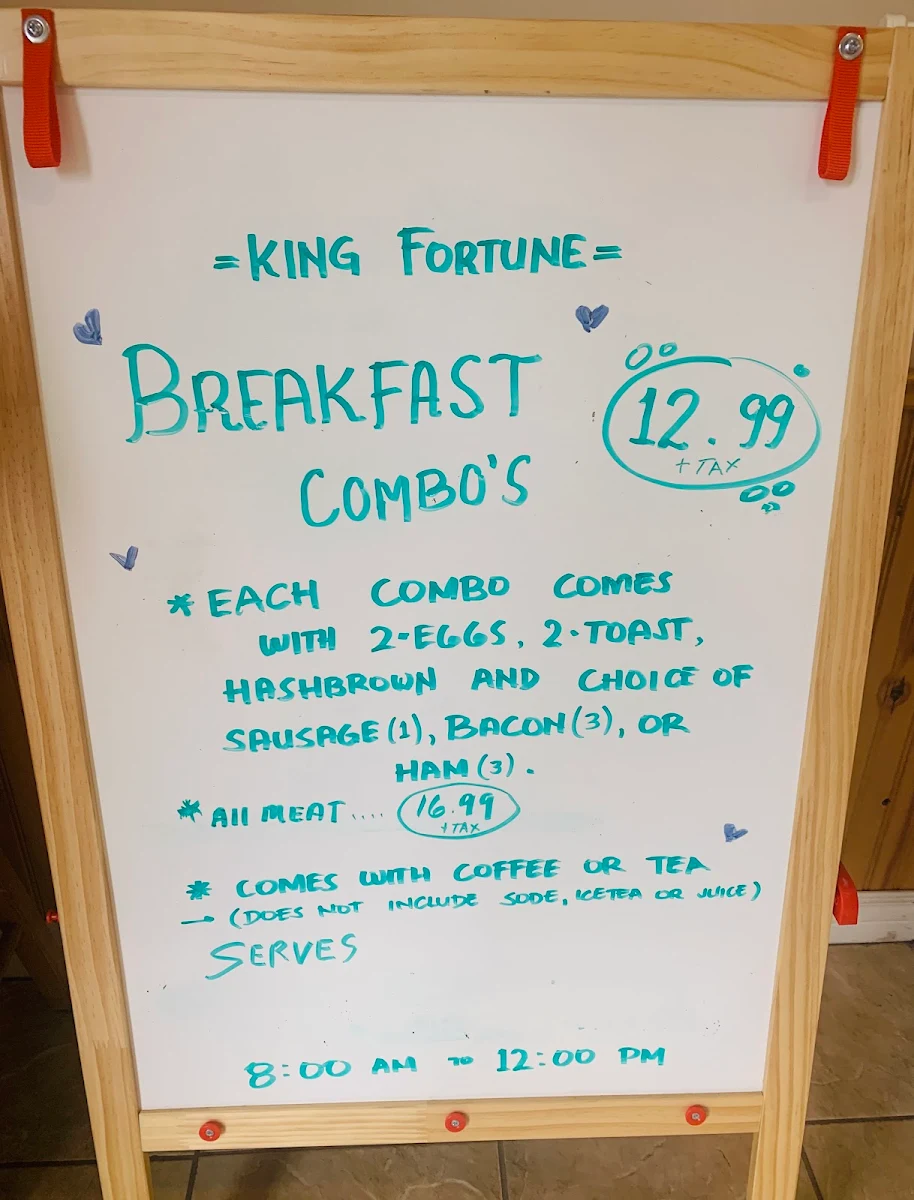 =KING FORTUNE=
BREAKFAST
COMBO'S
12.99
+ TAX
* EACH COMBO COMES
WITH 2-EGGS, 2-TOAST,
HASHBROWN AND CHOICE OF
SAUSAGE (1), BACON (3), OR
HAM (3).
* All MEAT .... 16.99
+TAX
* COMES WITH COFFEE OR TEA
→ (DOES NOT INCLUDE SODE, ICETEA OR JUICE)
SERVES
8:00 AM TO 12:00 PM